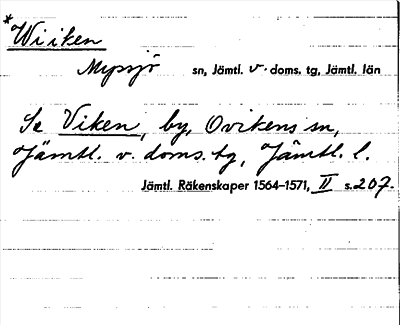 *Wiiken
Myssjö sn, Jämtl. v. doms. tg, Jämtl. län
Se Viken, by, Ovikens sn,
Jämtl. v. doms. tg, Jämtl. l.
Jämtl. Räkenskaper 1564–1571, II s. 207.